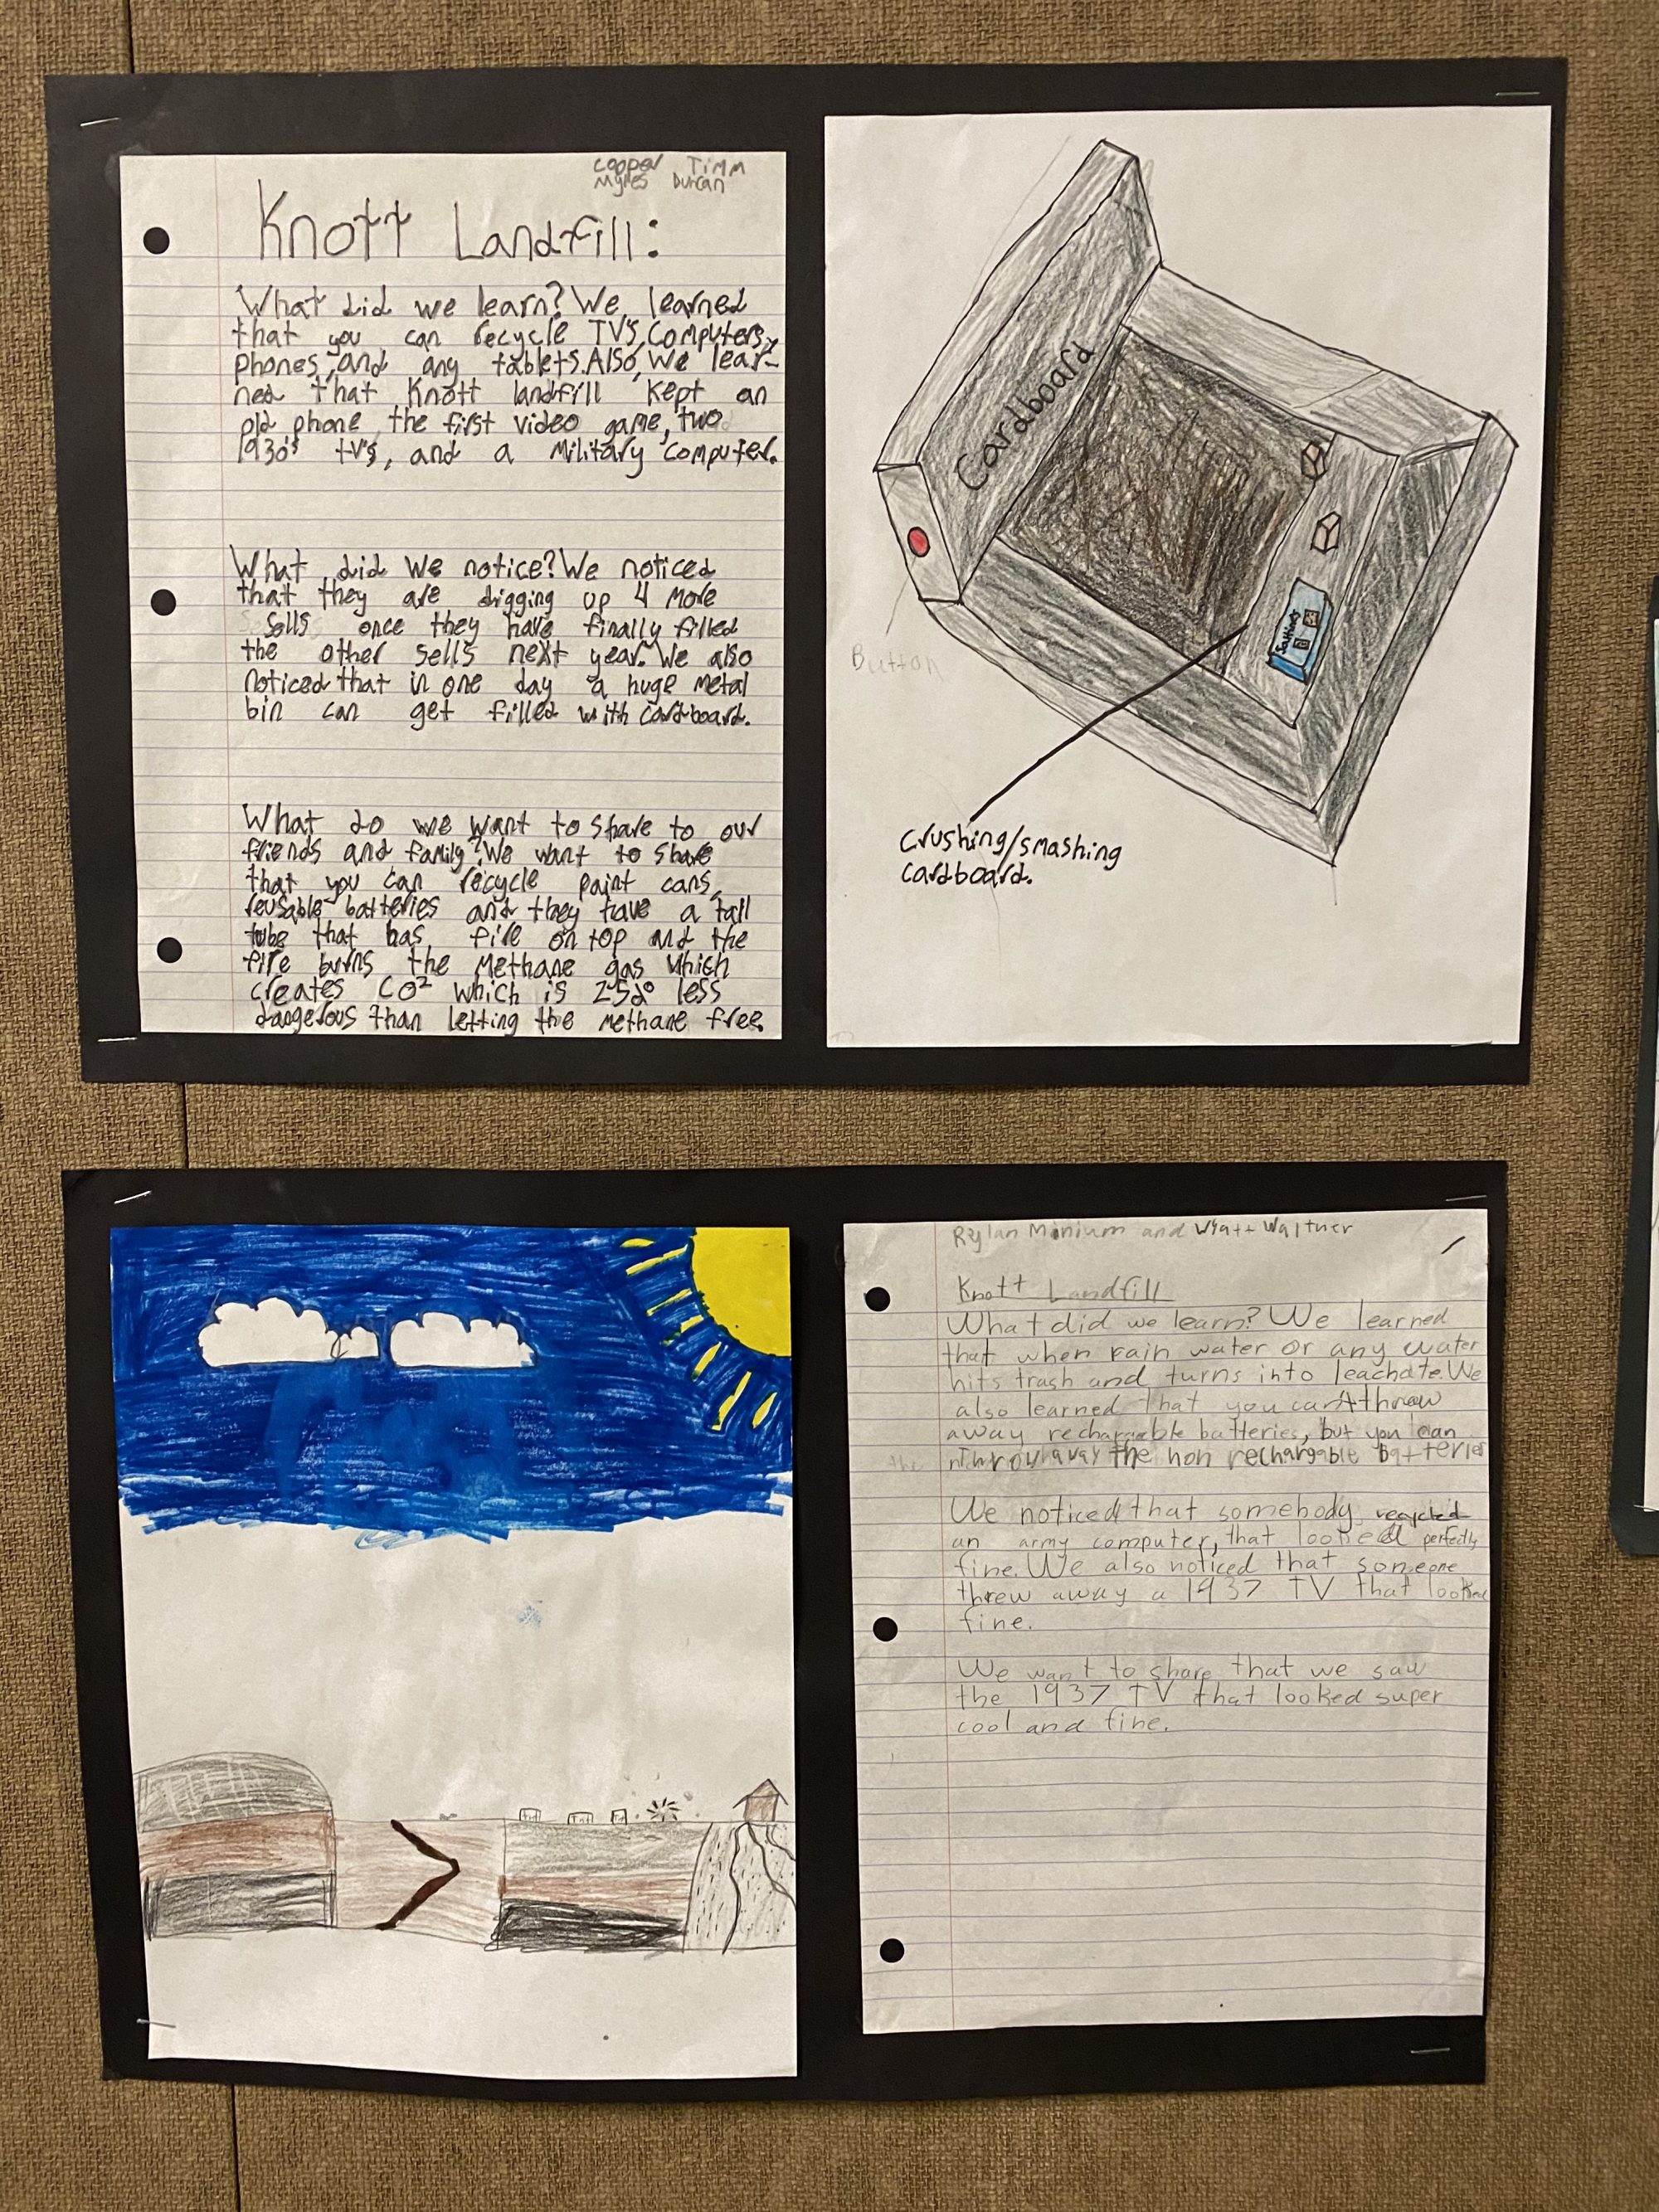 Cooper Timm
Myles Duncan
Knott Landfill:
What did we learn? We learned
that you can recycle TV's, Computers,
phones, and any tablets. Also, we lear-
ned that Knott landfill kept an
old phone, the first video game, two
1930's TV's, and a Military Computer.
What did we notice? We noticed
that they are digging up 4 more
Sells once they have finally filled
the other sells next year. We also
noticed that in one day a huge metal
bin can get filled with cardboard.
What do we want to share to our
friends and family? We want to share
that you can recycle paint cans,
reusable batteries and they have a tall
tube that has fire on top and the
fire burns the Methane gas which
creates CO² which is less
dangerous than letting the methane free.
Cardboard
Button
Crushing/smashing
cardboard.
Rylan Monium and Wyatt Waltner
Knott Landfill
What did we learn? We learned
that when rain water or any water
hits trash and turns into leachate. We
also learned that you can't throw
away rechargable batteries, but you can
throw away the non rechargable Batteries
We noticed that somebody recycled
an army computer, that looked perfectly
fine. We also noticed that someone
threw away a 1937 TV that looked
fine.
We want to share that we saw
the 1937 TV that looked super
cool and fine.